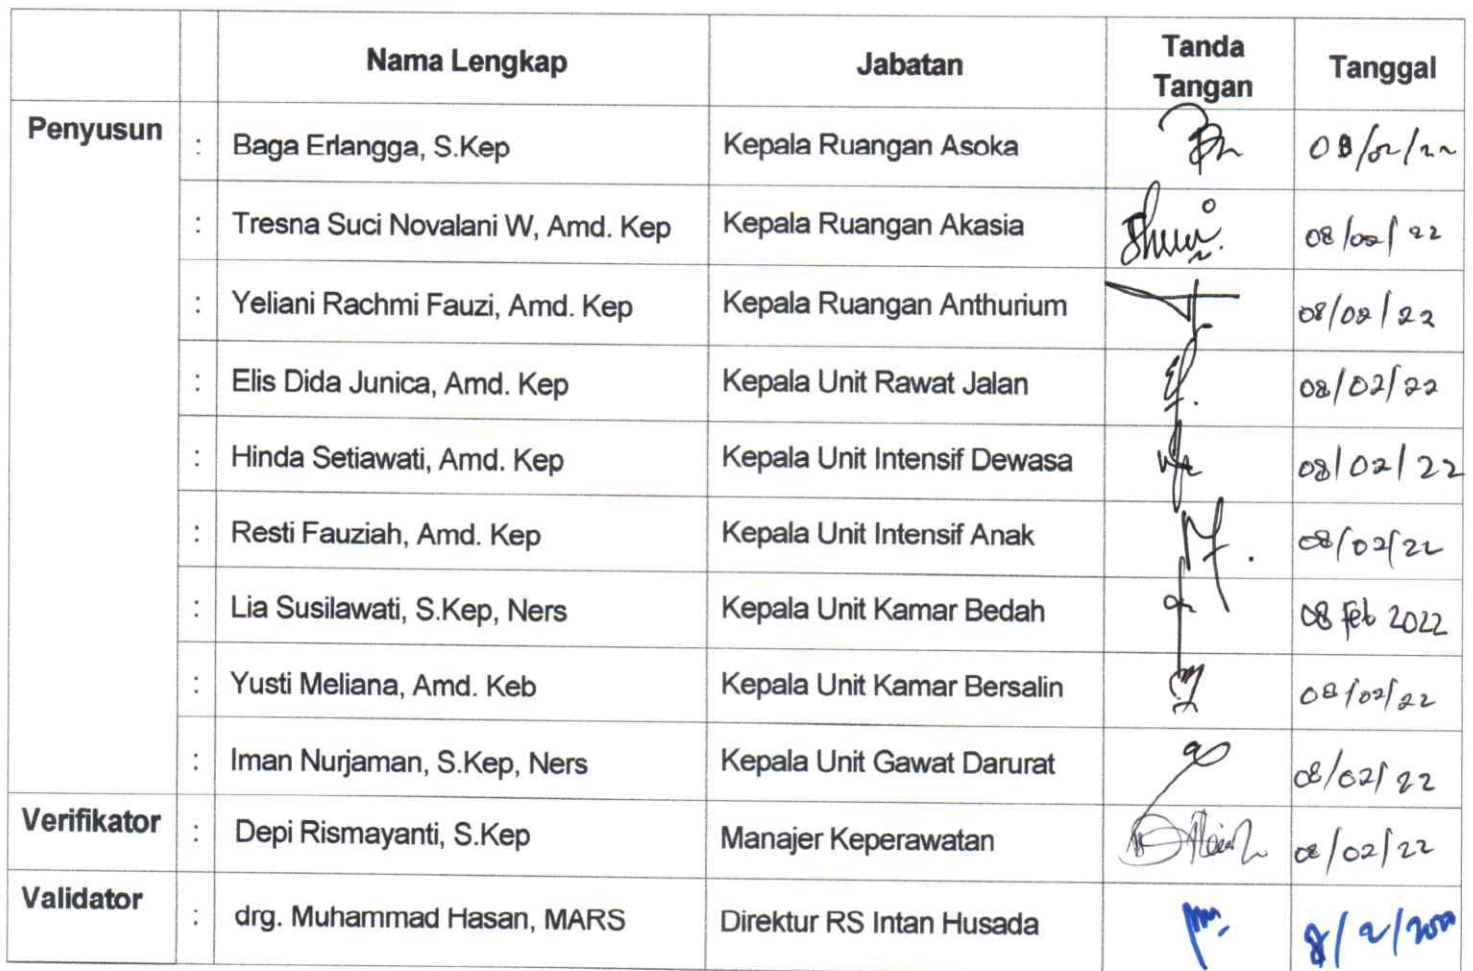 Nama Lengkap Jabatan Tanda Tangan Tanggal
Penyusun : Baga Erlangga, S.Kep Kepala Ruangan Asoka 08/02/22
: Tresna Suci Novalani W, Amd. Kep Kepala Ruangan Akasia 08/02/22
: Yeliani Rachmi Fauzi, Amd. Kep Kepala Ruangan Anthurium 08/02/22
: Elis Dida Junica, Amd. Kep Kepala Unit Rawat Jalan 08/02/22
: Hinda Setiawati, Amd. Kep Kepala Unit Intensif Dewasa 08/02/22
: Resti Fauziah, Amd. Kep Kepala Unit Intensif Anak 08/02/22
: Lia Susilawati, S.Kep, Ners Kepala Unit Kamar Bedah 08 Feb 2022
: Yusti Meliana, Amd. Keb Kepala Unit Kamar Bersalin 08/02/22
: Iman Nurjaman, S.Kep, Ners Kepala Unit Gawat Darurat 08/02/22
Verifikator : Depi Rismayanti, S.Kep Manajer Keperawatan 08/02/22
Validator : drg. Muhammad Hasan, MARS Direktur RS Intan Husada